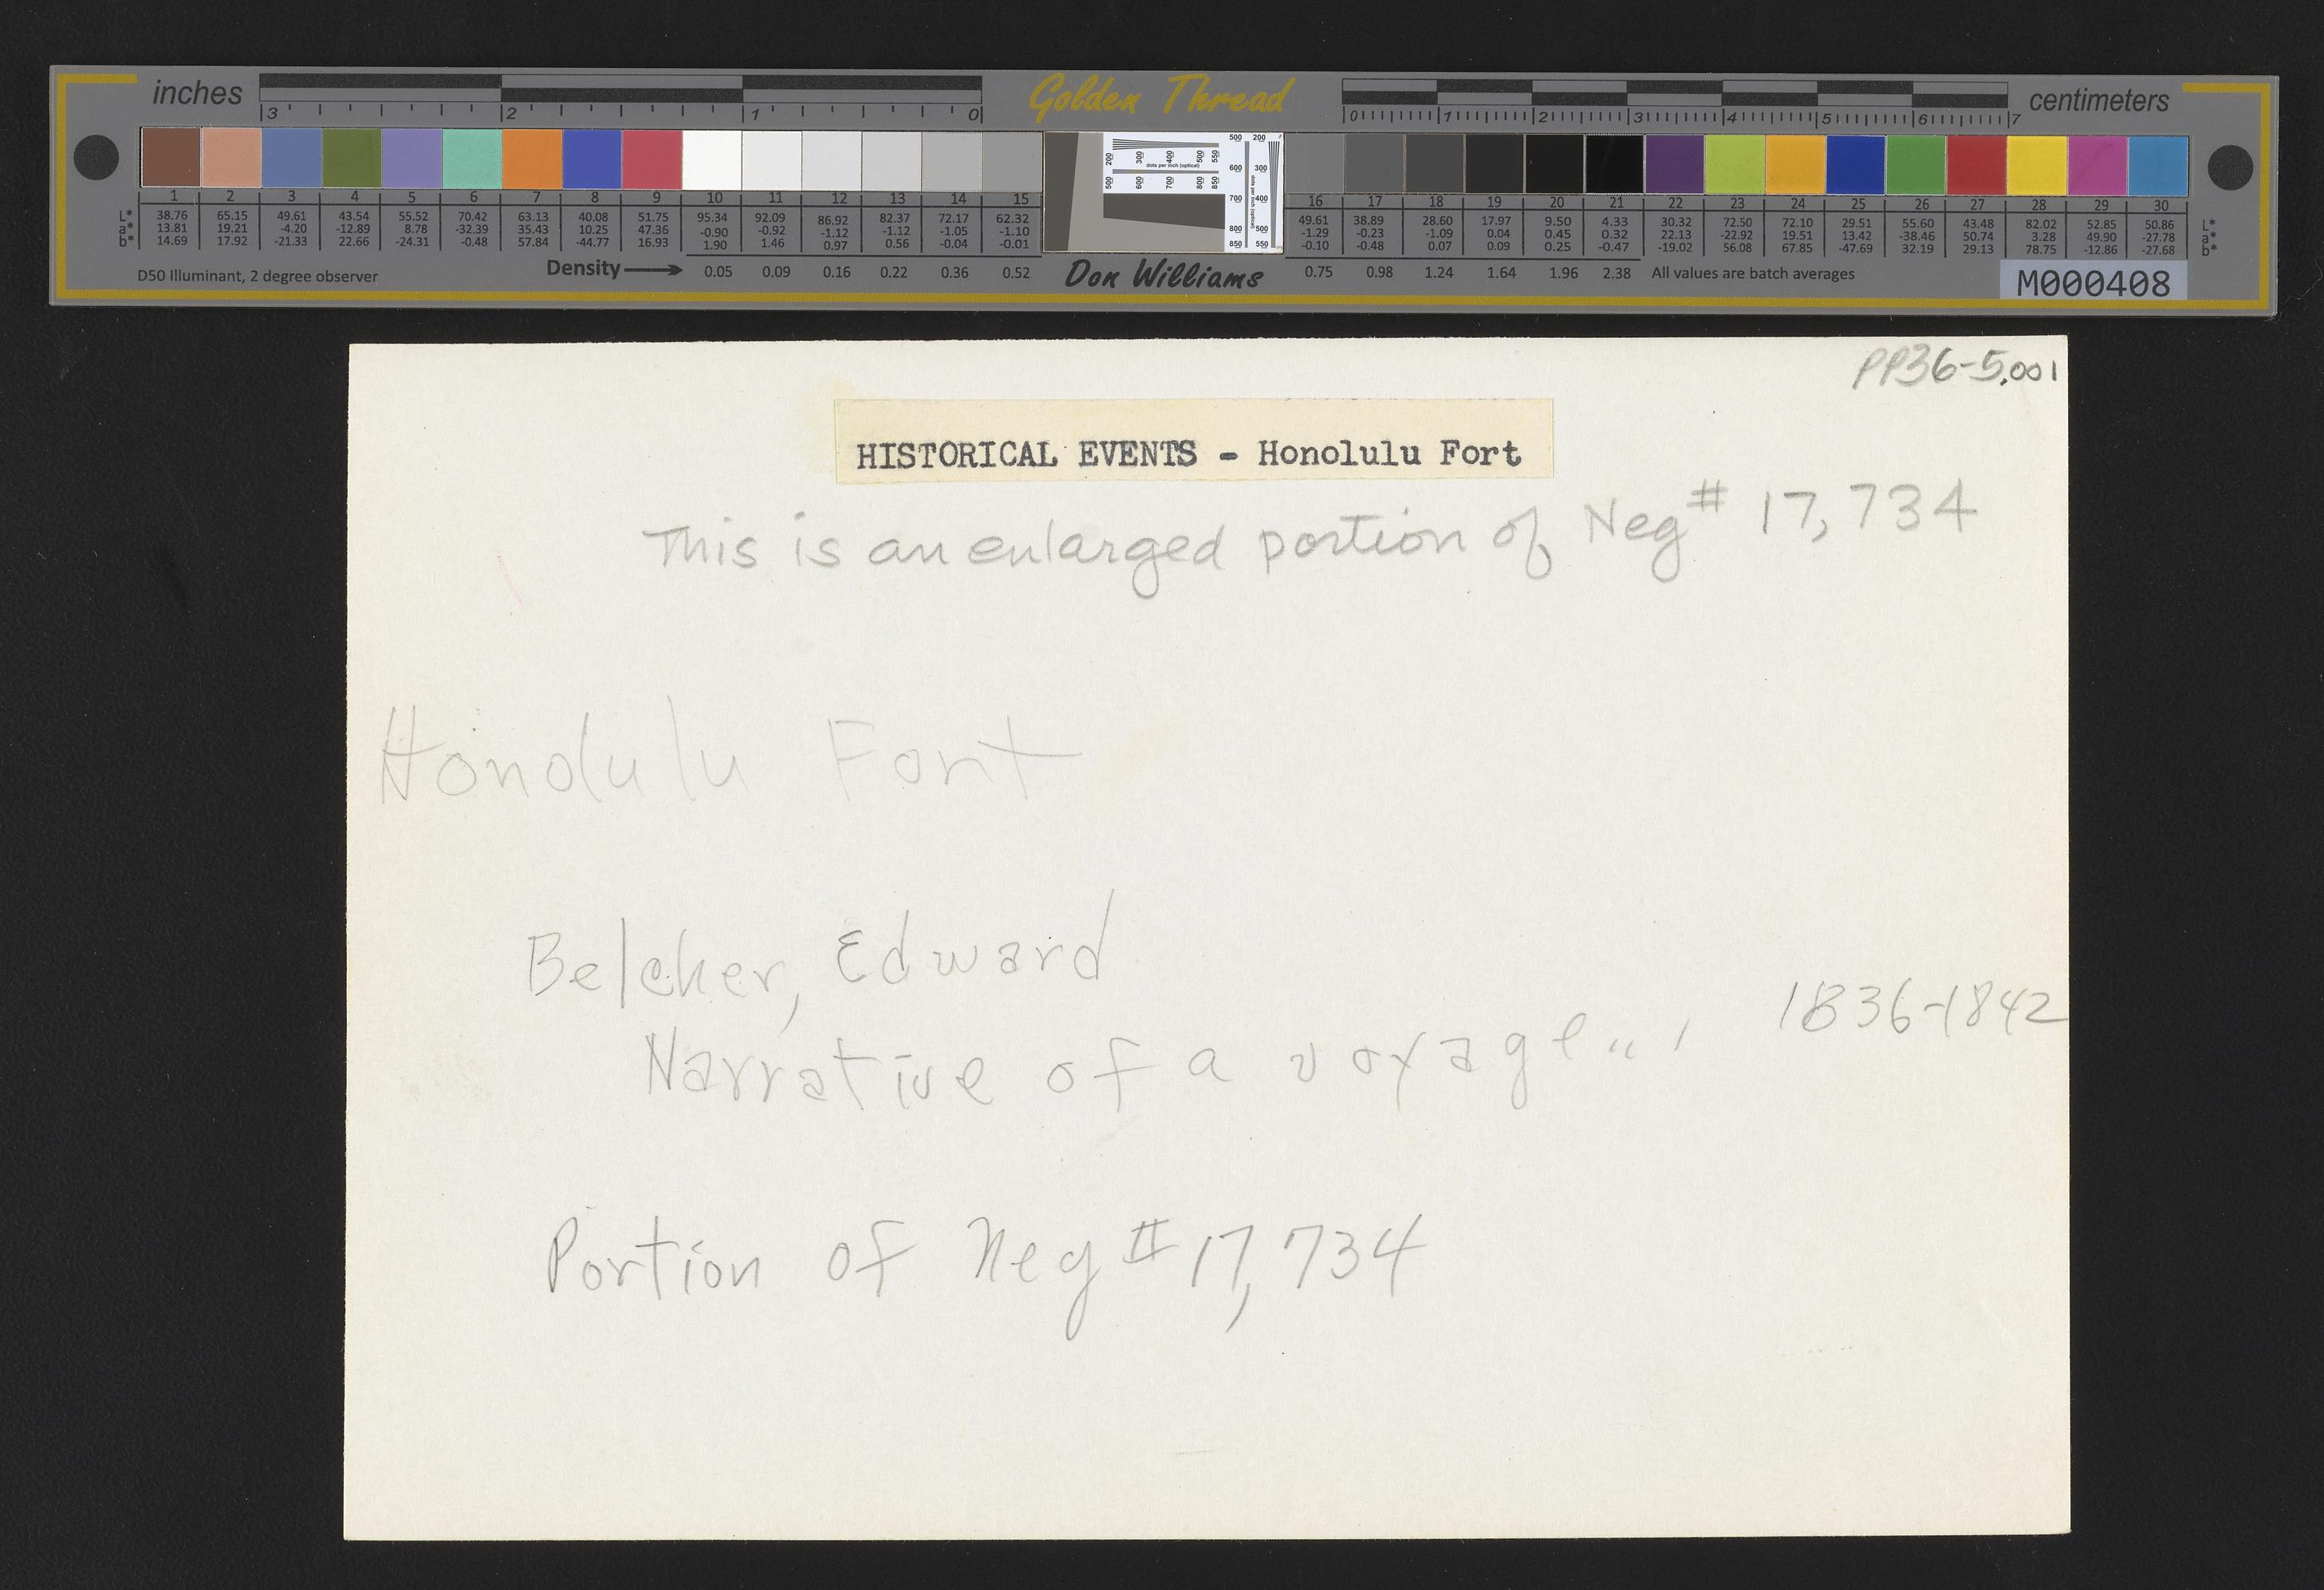 inches
Golden Thread
centimeters
3 2 1 0
0 1 2 3 4 5 6 7
1 2 3 4 5 6 7 8 9 10 11 12 13 14 15
L* 38.76 65.15 49.61 43.54 55.52 70.42 63.13 40.08 51.75 95.34 92.09 86.92 82.37 72.17 62.32
a* 13.81 19.21 -4.20 -12.89 8.78 -32.39 35.43 10.25 47.36 -0.90 -0.92 -1.12 -1.12 -1.05 -1.10
b* 14.69 17.92 -21.33 22.66 -24.31 -0.48 57.84 -44.77 16.93 1.90 1.46 0.97 0.56 -0.04 -0.01
D50 Illuminant, 2 degree observer
Density 0.05 0.09 0.16 0.22 0.36 0.52
200 300 400 500 550
dots per inch (optical)
500 600 700 800 850
500 200
600 300
700 400
800 500
850 550
Don Williams
16 17 18 19 20 21 22 23 24 25 26 27 28 29 30
49.61 38.89 28.60 17.97 9.50 4.33 30.32 72.50 72.10 29.51 55.60 43.48 82.02 52.85 50.86 L*
-1.29 -0.23 -1.09 0.04 0.45 0.32 22.13 -22.92 19.51 13.42 -38.46 50.74 3.28 49.90 -27.78 a*
-0.10 -0.48 0.07 0.09 0.25 -0.47 -19.02 56.08 67.85 -47.69 32.19 29.13 78.75 -12.86 -27.68 b*
0.75 0.98 1.24 1.64 1.96 2.38 All values are batch averages
M000408
PP36-5.001
HISTORICAL EVENTS - Honolulu Fort
This is an enlarged portion of Neg# 17,734
Honolulu Fort
Belcher, Edward
Narrative of a voyage... 1836-1842
Portion of Neg # 17,734